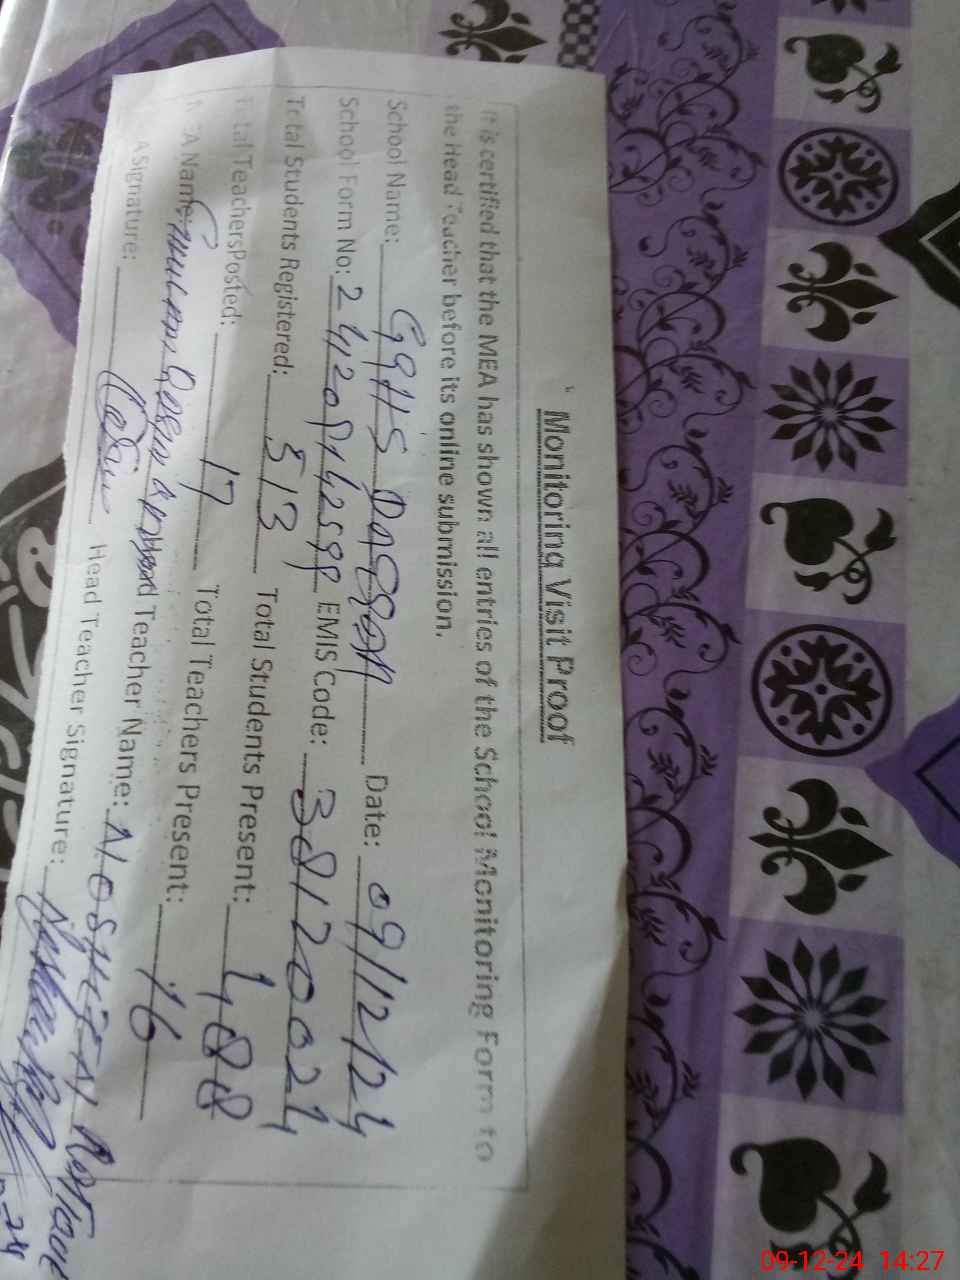 Monitoring Visit Proof
It is certified that the MEA has shown all entries of the School Monitoring Form to
the Head Teacher before its online submission.
School Name: GGHS Date: 09/12/24
School Form No: EMIS Code: 38120024
Total Students Registered: 513 Total Students Present: 488
Total Teachers Posted: 17 Total Teachers Present: 16
Name: Head Teacher Name: NOSHEEN
A Signature: Head Teacher Signature:
09-12-24 14:27